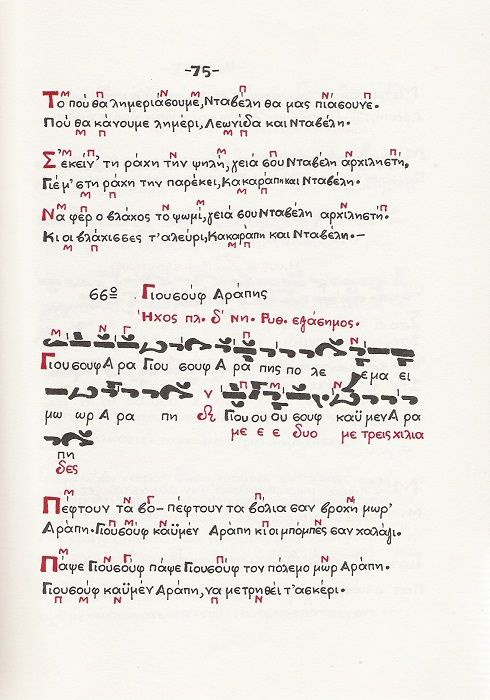 -75-
Μ Π Ν Μ Π Ν Π
Το πού θα λημεριάσουμε, Νταβέλη θα μας πιάσουνε.
Πού θα κάνουμε λημέρι, Λεωνίδα και Νταβέλη.
Μ Π Μ Π
Μ Π Ν Μ Π Ν Π
Σ' εκείν' τη ράχη την ψηλή, γειά σου Νταβέλη αρχιληστή,
Γιέ μ' στη ράχη την παρέκει, Κακαράπη και Νταβέλη.
Μ Π Μ Π
Μ Π Ν Μ Π Ν Π
Να φερ ο βλάχος το ψωμί, γειά σου Νταβέλη αρχιληστή.
Κι οι βλάχισσες τ' αλεύρι, Κακαράπη και Νταβέλη.-
Μ Π Μ Π
66ο Γιουσούφ Αράπης
Ήχος πλ. δ' Νη. Ρυθ. εξάσημος.
Μ Ν Γ Π Ν
Γιουσουφ Α ρα Γιου σουφ Α ρα πης πο λε εμα ει
ν Π Μ Ν
μω ωρ Α ρα πη Γιου ου ου σουφ καϋ μεν Α ρα
με ε ε δυο με τρεις χιλια
πη
δες
Μ Γ Π Ν
Πέφτουν τα βο- πέφτουν τα βόλια σαν βροχή μωρ'
Αράπη. Γιουσούφ καϋμέν Αράπη κι οι μπόμπες σαν χαλάζι.
Μ Ν Γ Π Ν
Πάψε Γιουσούφ πάψε Γιουσούφ τον πόλεμο μωρ Αράπη.
Γιουσούφ καϋμέν Αράπη, να μετρηθεί τ' ασκέρι.
Π Μ Ν Π Ν